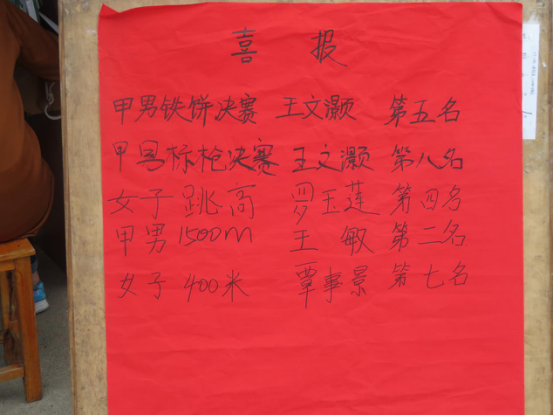 喜报
甲男铁饼决赛 王文灏 第五名
甲男标枪决赛 王文灏 第八名
女子跳高 罗玉莲 第四名
甲男1500m 王敏 第二名
女子400米 覃事景 第七名